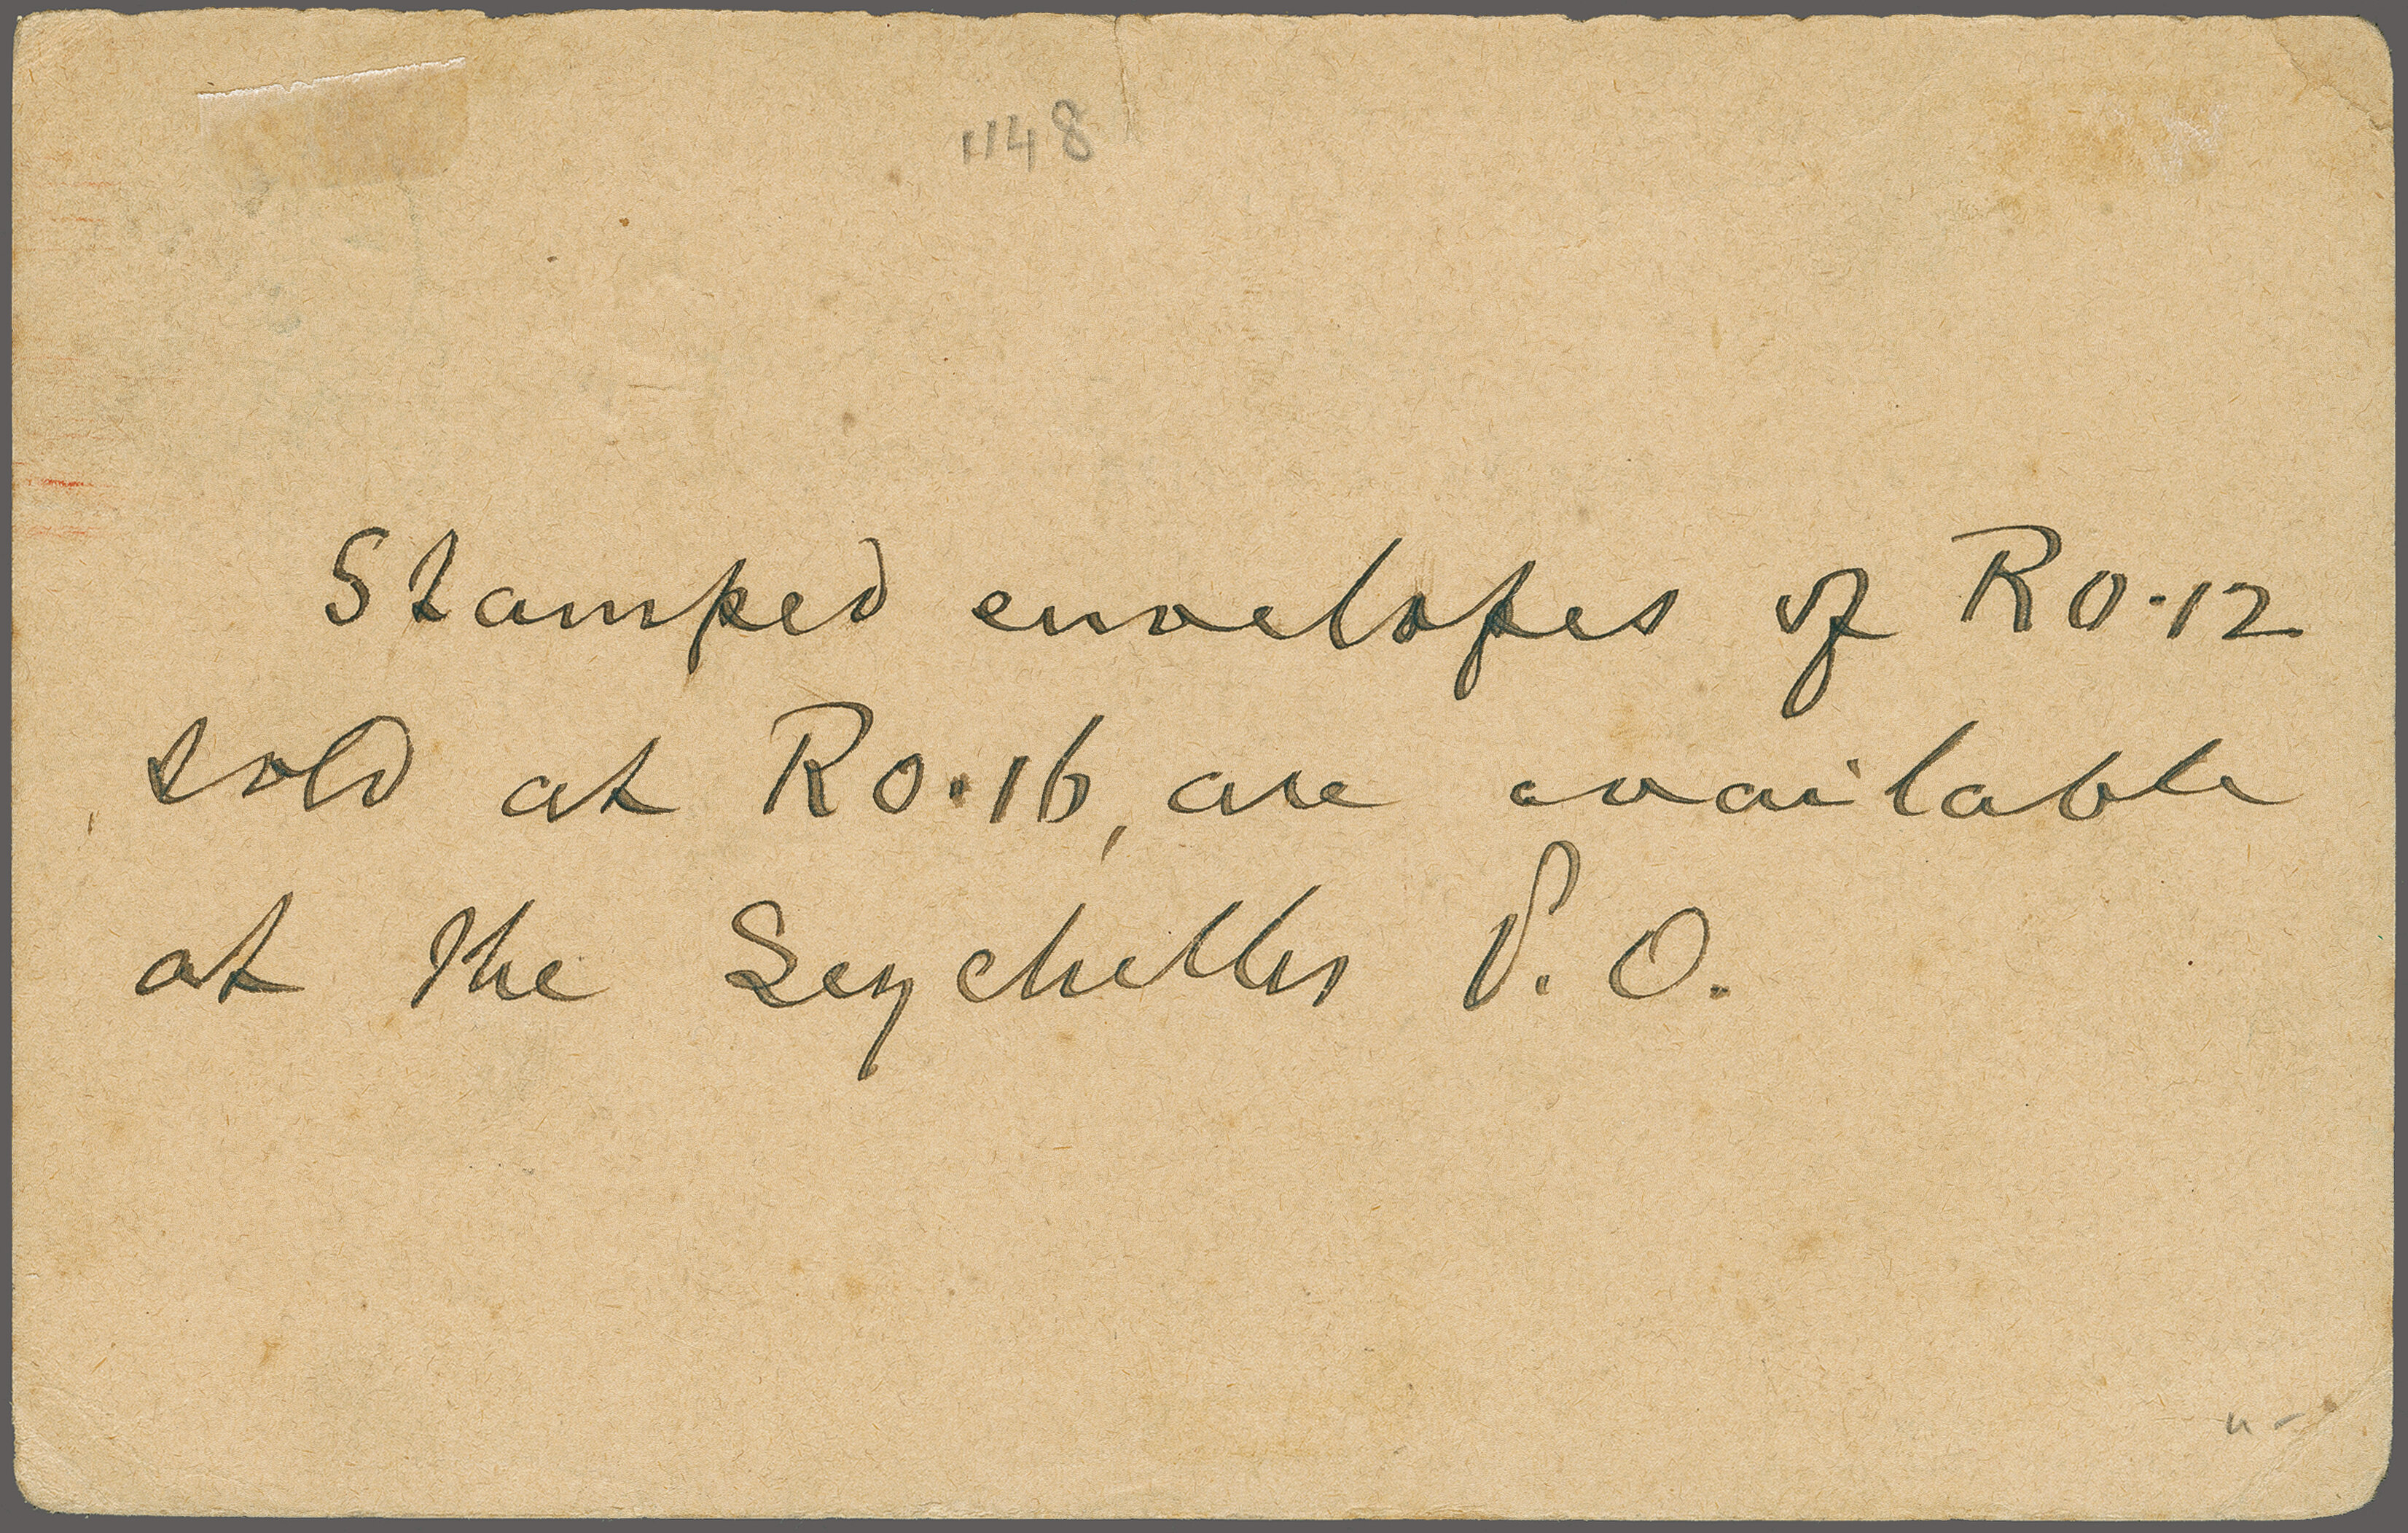 1148
Stamped envelopes of R0.12
sold at R0.16, are available
at the Seychelles P.O.